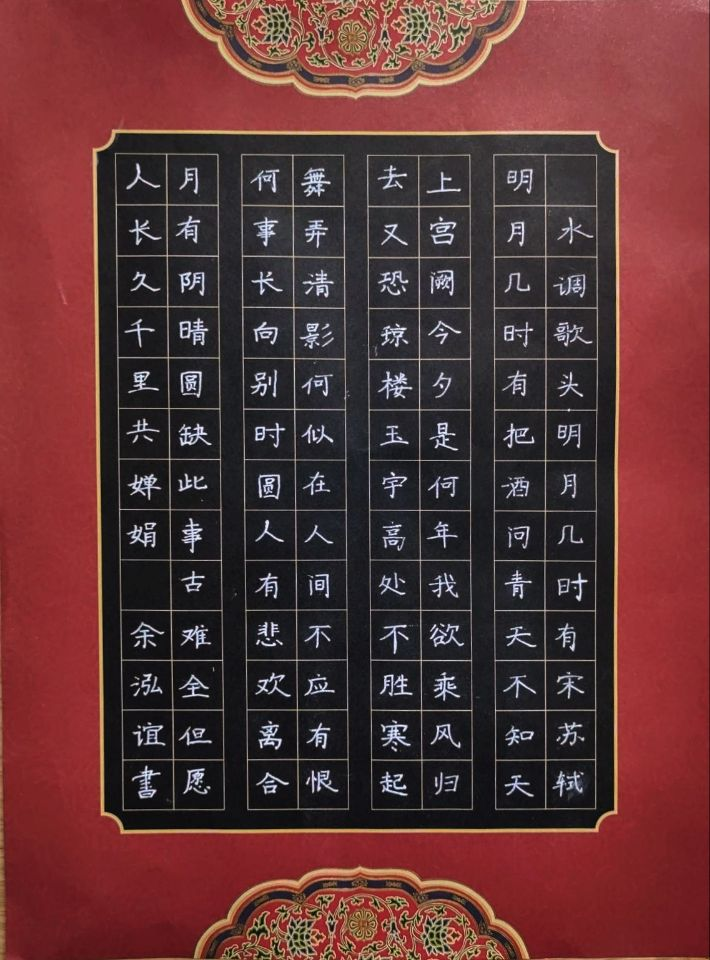 水调歌头明月几时有宋苏轼
明月几时有把酒问青天不知天
上宫阙今夕是何年我欲乘风归
去又恐琼楼玉宇高处不胜寒起
舞弄清影何似在人间不应有恨
何事长向别时圆人有悲欢离合
月有阴晴圆缺此事古难全但愿
人长久千里共婵娟 余泓谊書